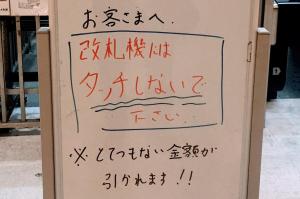 お客さまへ.
改札機には
タッチしないで
下さい.
※ とてつもない金額が
引かれます!!